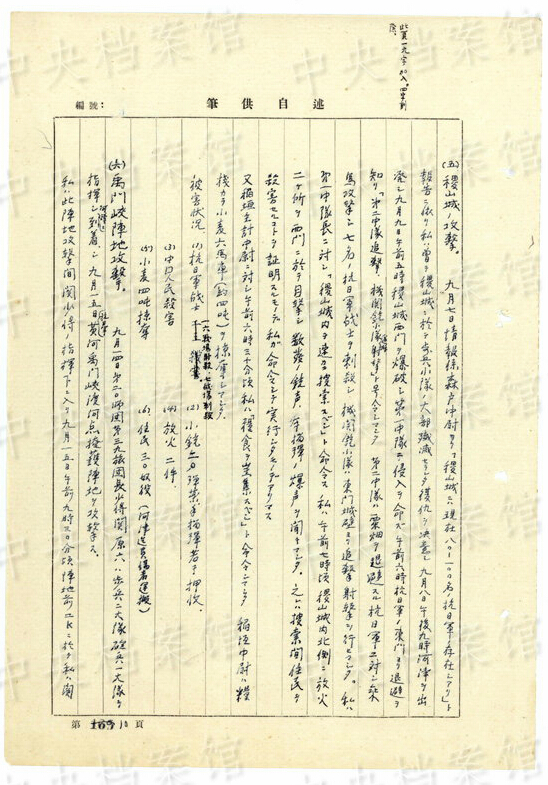 此頁一九字加入。四字削除。
述自供筆
編號:
(五) 稷山城ノ攻撃。 九月七日情報係森戸中尉ヨリ「稷山城ニハ現在八〇-一〇〇名ノ抗日軍ガ存在シアリ」ト
報告ニ依リ私ハ曽テ稷山城ニ於テ歩兵小隊ノ大部殲滅
復仇ヲ決意シ九月八日午後九時河津ヲ出
発シ九月九日午前五時稷山城西門ヲ爆破シ第一中隊ニ侵入ヲ命ズ午前六時抗日軍ノ東門ヨリ退避ヲ
知リ「第二中隊追撃、機関銃小隊射撃」ト号令シマシタ 第二中隊ハ粟畑ヲ退避スル抗日軍ニ対シ乗
馬攻撃シ七名ノ抗日軍戦士ヲ刺殺シ機関銃小隊ハ東門城壁ヨリ追撃射撃ヲ行ヒマシタ。私ハ
第一中隊長ニ対シ「稷山城内ヲ速カニ捜索スベシ」ト命令ス 私ハ午前七時頃稷山城内北側ニ放火
二ヶ所ヲ西門ニ於テ目撃シ数発ノ銃声、手榴弾ノ爆声ヲ聞キマシタ。之レハ捜索間住民ヲ
殺害セルコトヲ証明スルモノデ私ガ命令シテ実行シタモノデアリマス
又稲垣主計中尉ニ対シ午前六時三十分頃私ハ「糧食ヲ蒐集スベシ」ト命令シマシタ 稲垣中尉ハ糧
秣カラ小麦六馬車(約四吨)ヲ掠奪シマシタ。
被害状況 (1) 抗日軍戦士
(2) 小銃
弾薬、手榴弾若干押收。
(3) 中国人民殺害
(4) 放火 二件。
(5) 小麦四吨掠奪
(6) 住民三〇奴役(河津迄負傷者運搬)
(六) 禹門峽陣地攻撃。 九月一四日第二〇師団第三九旅団長少将関原六ハ歩兵二大隊砲兵一大隊ヲ
指揮シ河津ニ到着シ九月一五日黄河禹門峽渡河点掩護陣地ヲ攻撃ス。
私ハ此陣地攻撃間関少将ノ指揮下ニ入リ九月一五日午前九時三〇分頃陣地前
ニ於テ私ハ関
第
頁
中央档案馆